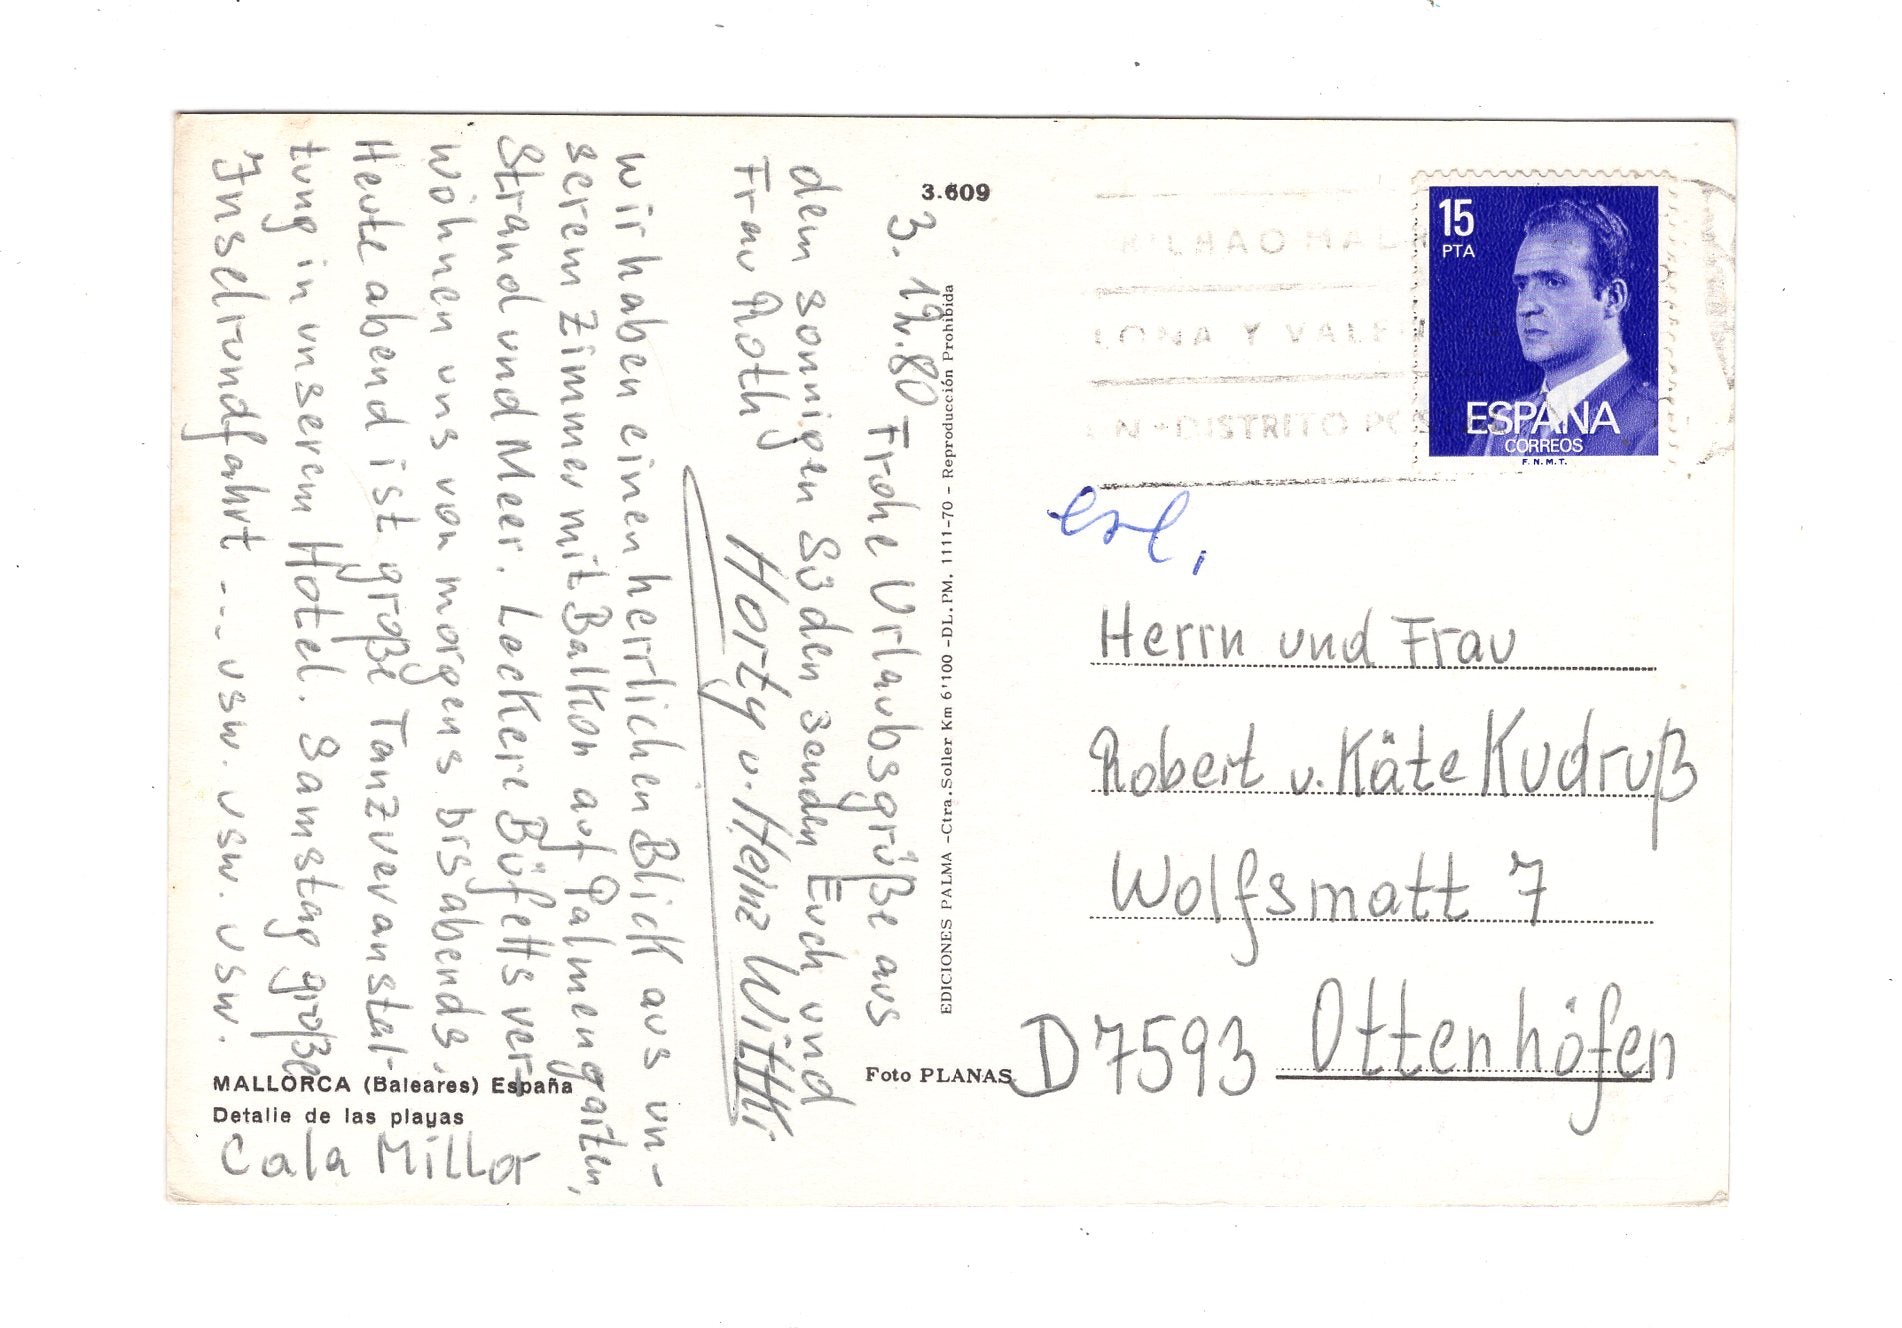 3.609
3. 12. 80 Frohe Urlaubsgrüße aus
dem sonnigen Süden senden Euch und
Frau Roth
Horty u. Heinz Wittki
Wir haben einen herrlichen Blick aus un-
serem Zimmer mit Balkon auf Palmengarten,
Strand und Meer. Leckere Büfetts ver-
wöhnen uns von morgens bis abends.
Heute abend ist große Tanzveranstal-
tung in unserem Hotel. Samstag große
Inselrundfahrt --- usw. usw. usw. usw.
MALLORCA (Baleares) España
Detalle de las playas
Cala Millor
EDICIONES PALMA -Ctra. Soller Km 6'100 -DL. PM. 1111-70 - Reproducción Prohibida
Foto PLANAS
BILBAO MADR
LONA Y VALEN
N-DISTRITO POS
15
PTA
ESPAÑA
CORREOS
F.N.M.T.
Herrn und Frau
Robert u. Käte Kudruß
Wolfsmatt 7
D 7593 Ottenhöfen